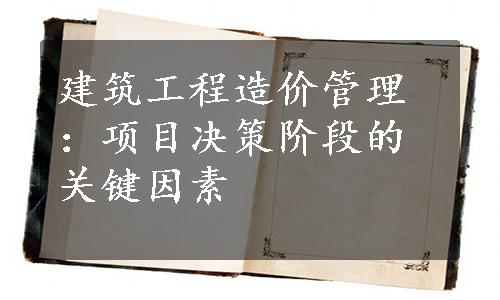 建筑工程造价管理
：项目决策阶段的
关键因素